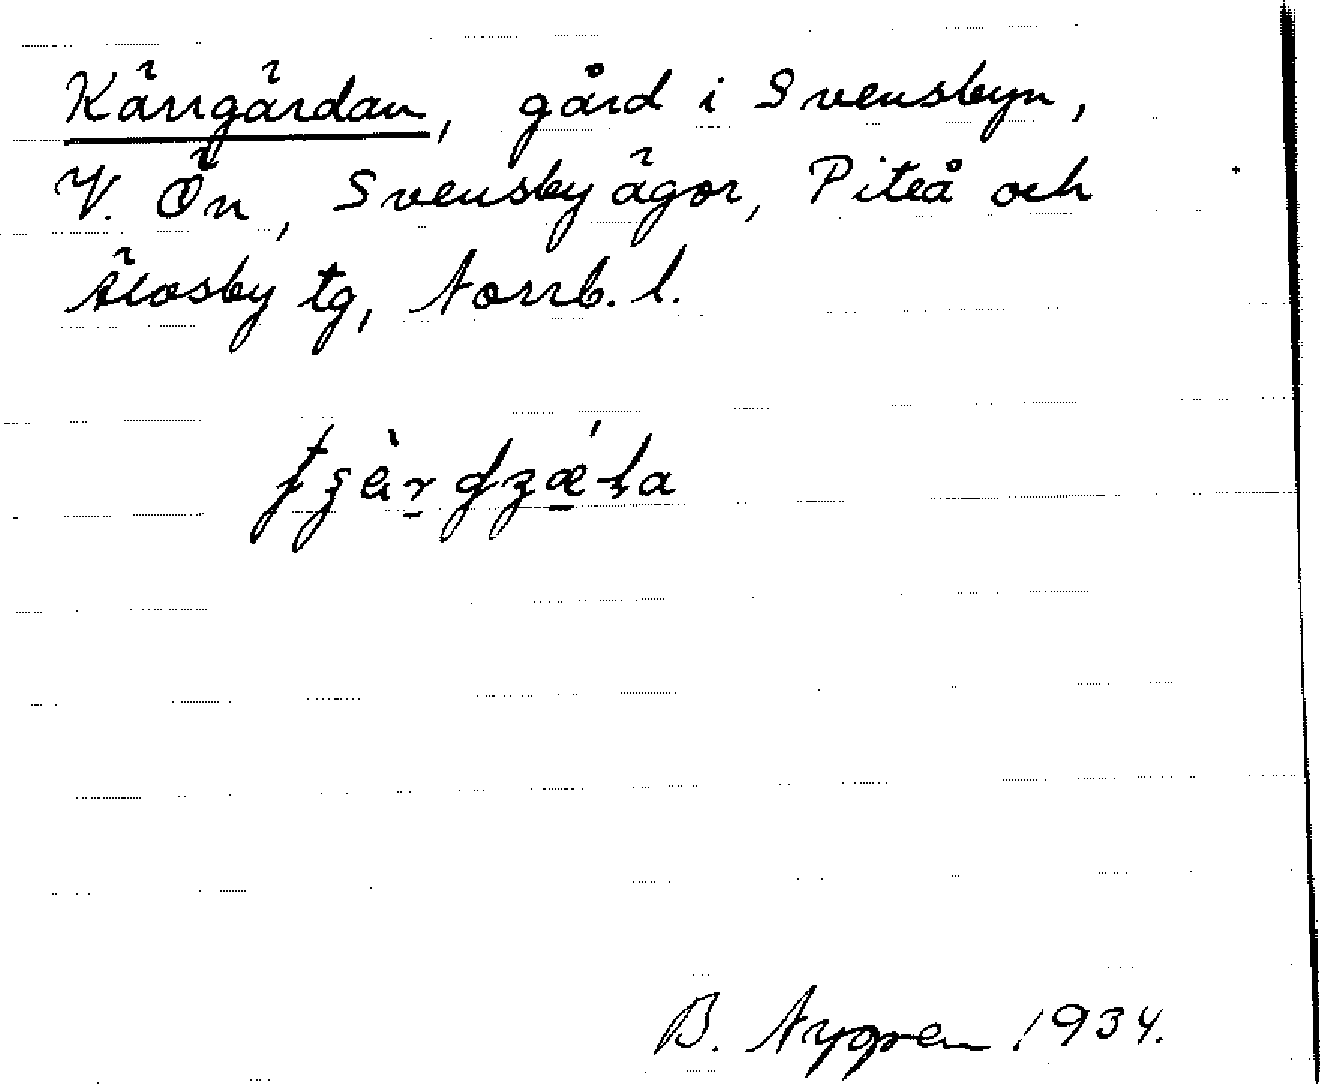 Kärrgärdan, gård i Svensbyn,
V. Ön, Svensby ägor, Piteå och
Älvsby tg, Norrb. l.
B. Nygren 1934.